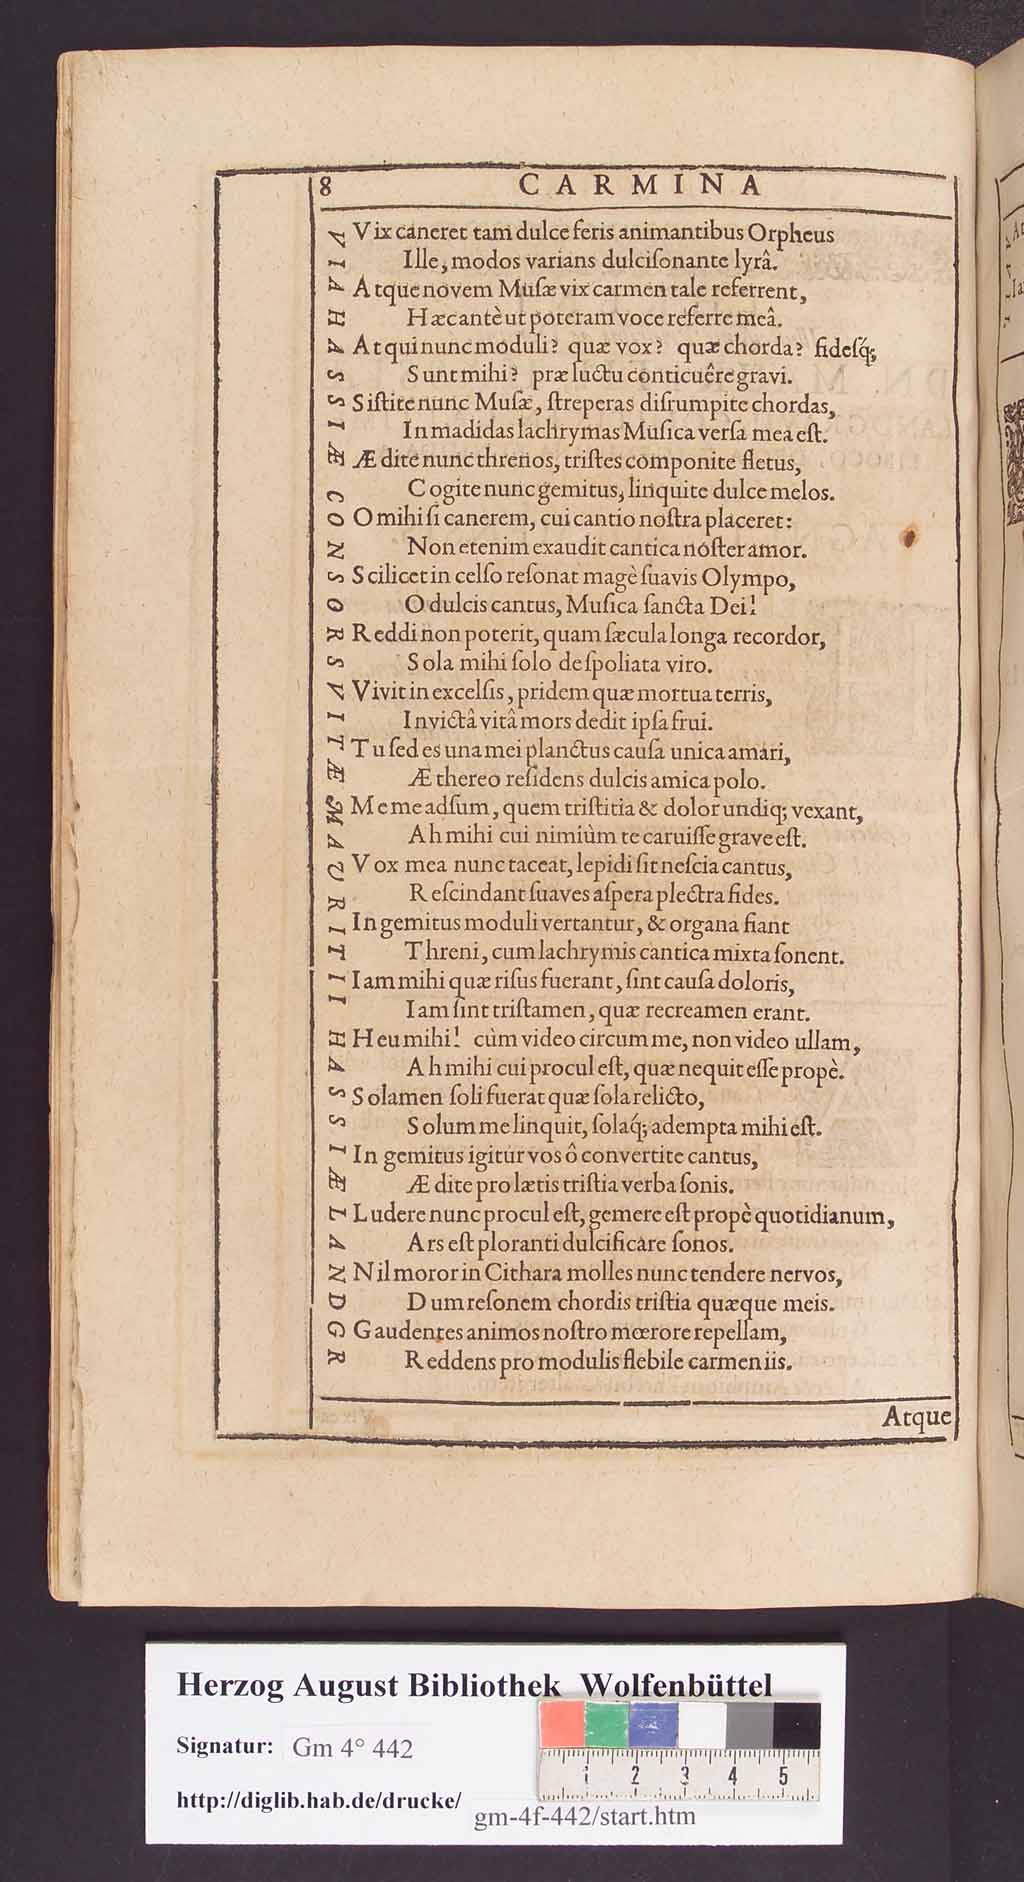 8 CARMINA
V Vix caneret tam dulce feris animantibus Orpheus
I Ille, modos varians dulciſonante lyrâ.
A Atque novem Muſæ vix carmen tale referrent,
H Hæc antè ut poteram voce referre meâ.
A Atqui nunc moduli? quæ vox? quæ chorda? fideſq́;
S Sunt mihi? præ luctu conticuêre gravi.
S Siſtite nunc Muſæ, ſtreperas diſrumpite chordas,
I In madidas lachrymas Muſica verſa mea eſt.
Æ Ædite nunc threnos, triſtes componite fletus,
C Cogite nunc gemitus, linquite dulce melos.
O O mihi ſi canerem, cui cantio noſtra placeret:
N Non etenim exaudit cantica noſter amor.
S Scilicet in celſo reſonat magè ſuavis Olympo,
O O dulcis cantus, Muſica ſancta Dei!
R Reddi non poterit, quam ſæcula longa recordor,
S Sola mihi ſolo deſpoliata viro.
V Vivit in excelſis, pridem quæ mortua terris,
I Invictâ vitâ mors dedit ipſa frui.
T Tu ſed es una mei planctus cauſa unica amari,
Æ Æthereo reſidens dulcis amica polo.
M Meme adſum, quem triſtitia & dolor undiq; vexant,
A Ah mihi cui nimiùm te caruiſſe grave eſt.
U Vox mea nunc taceat, lepidi ſit neſcia cantus,
R Reſcindant ſuaves aſpera plectra fides.
I In gemitus moduli vertantur, & organa fiant
T Threni, cum lachrymis cantica mixta ſonent.
I Iam mihi quæ riſus fuerant, ſint cauſa doloris,
I Iam ſint triſtamen, quæ recreamen erant.
H Heu mihi! cùm video circum me, non video ullam,
A Ah mihi cui procul eſt, quæ nequit eſſe propè.
S Solamen ſoli fuerat quæ ſola relicto,
S Solum me linquit, ſolaq́; adempta mihi eſt.
I In gemitus igitur vos ô convertite cantus,
Æ Ædite pro lætis triſtia verba ſonis.
L Ludere nunc procul eſt, gemere eſt propè quotidianum,
A Ars eſt ploranti dulcificare ſonos.
N Nil moror in Cithara molles nunc tendere nervos,
D Dum reſonem chordis triſtia quæque meis.
G Gaudentes animos noſtro mœrore repellam,
R Reddens pro modulis flebile carmen iis.
Atque
Herzog August Bibliothek Wolfenbüttel
Signatur: Gm 4° 442
http://diglib.hab.de/drucke/ gm-4f-442/start.htm
1 2 3 4 5